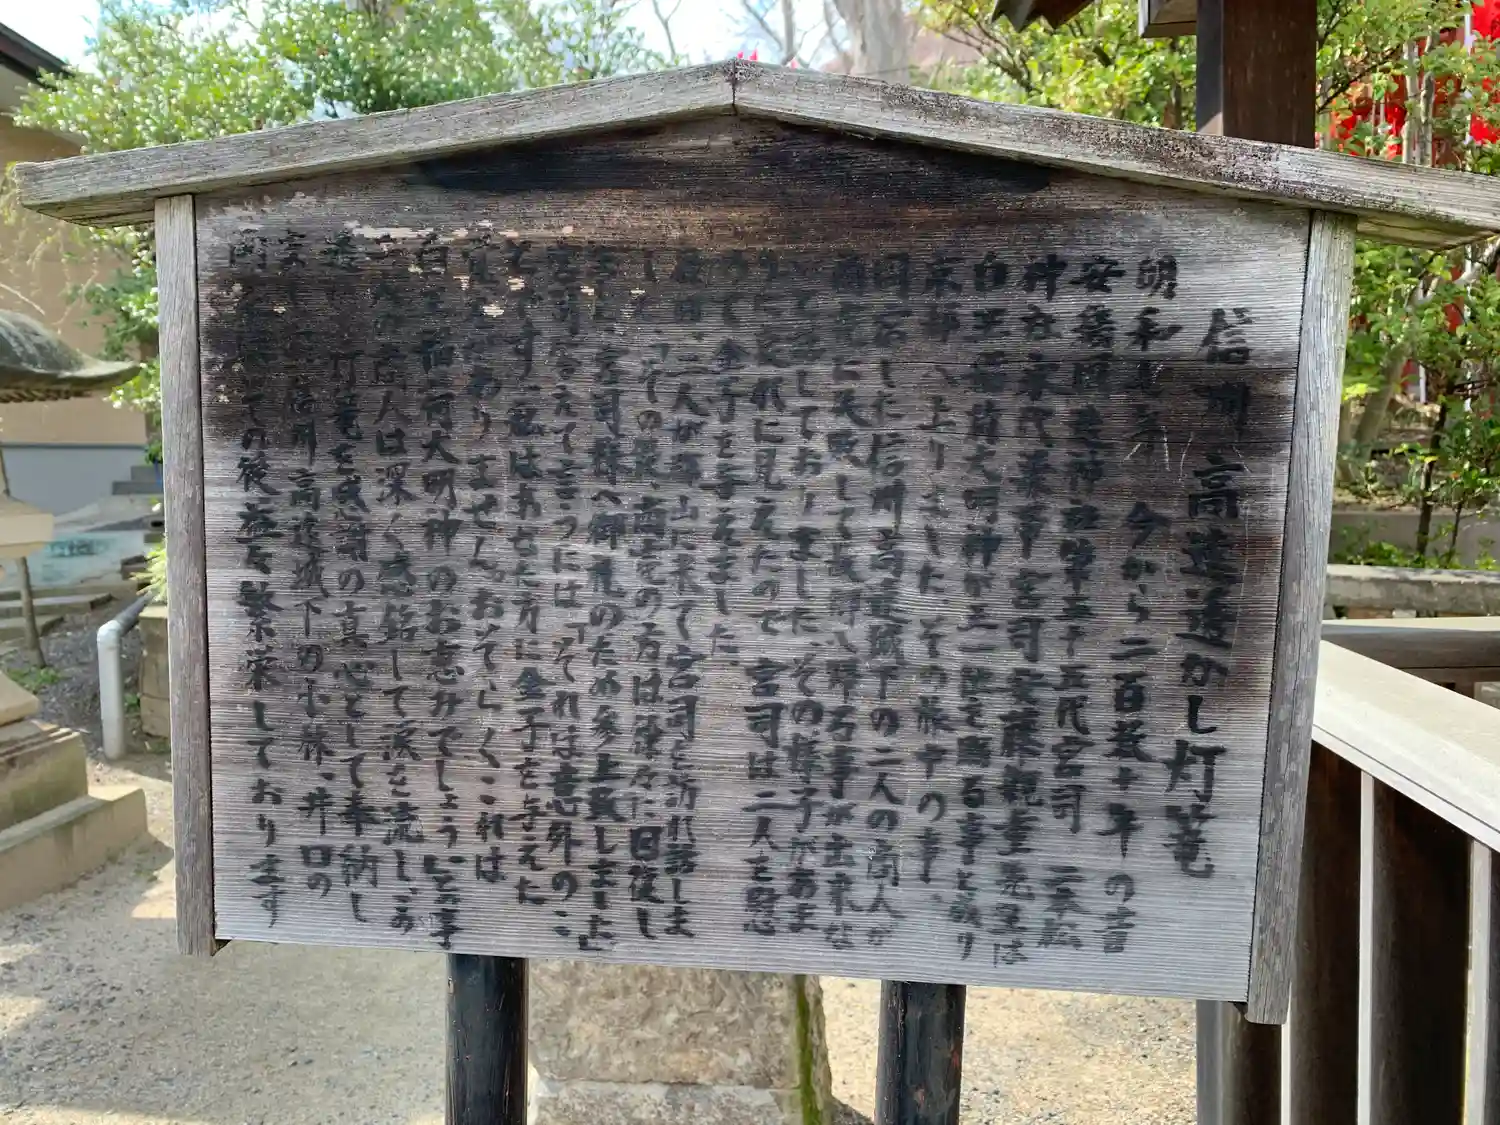 信州高遠透かし灯篭
明和 今から二百数十年の昔
安 神社第五十五代宮司 二本松
神社永代 宮司安藤親重 は
白王稲荷大明神が正一位を賜る事と成り
京都へ上りました。その旅中の事、
同宿した信州高遠城下の二人の商人が
商売に失敗して 支払 出来な
いで しておりました。その様子があま
りに哀れに見えたので宮司は二人を慰
めて金子を与えました。
後日、二人が 山に来て宮司を訪れ話しま
した。「その後、商売の方は 々に回復し
宮司 へ御礼のため参上致しました」
宮司答えて言うには「それは意外のこ
とです。私はあなた方に金子を与えた
覚えがありません。おそらくこれは
白王稲荷大明神のお恵みでしょう」と 事
二人の商人は深く感銘して涙を流し、この
透かし灯篭を感謝の真心として奉納し
信州高遠城下の小林、井口の
両 その後益々繁栄しております